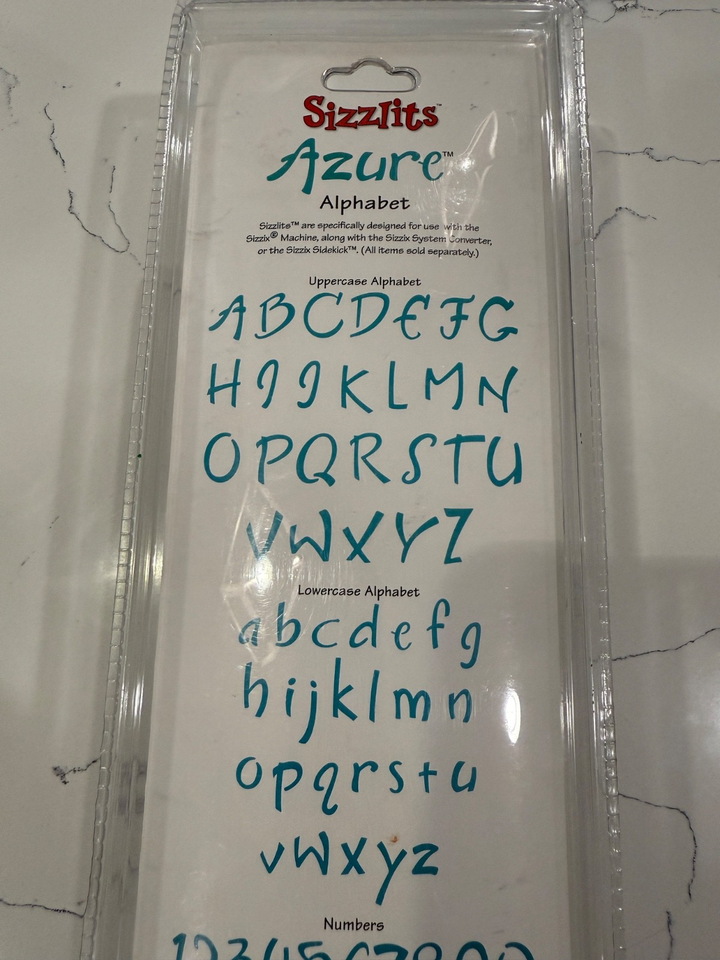 Sizzlits™
Azure™
Alphabet
Sizzlits™ are specifically designed for use with the
Sizzix® Machine, along with the Sizzix System Converter,
or the Sizzix Sidekick™. (All items sold separately.)
Uppercase Alphabet
ABCDEFG
HIJKLMN
OPQRSTU
VWXYZ
Lowercase Alphabet
abcdefg
hijklmn
opqrstu
vwxyz
Numbers